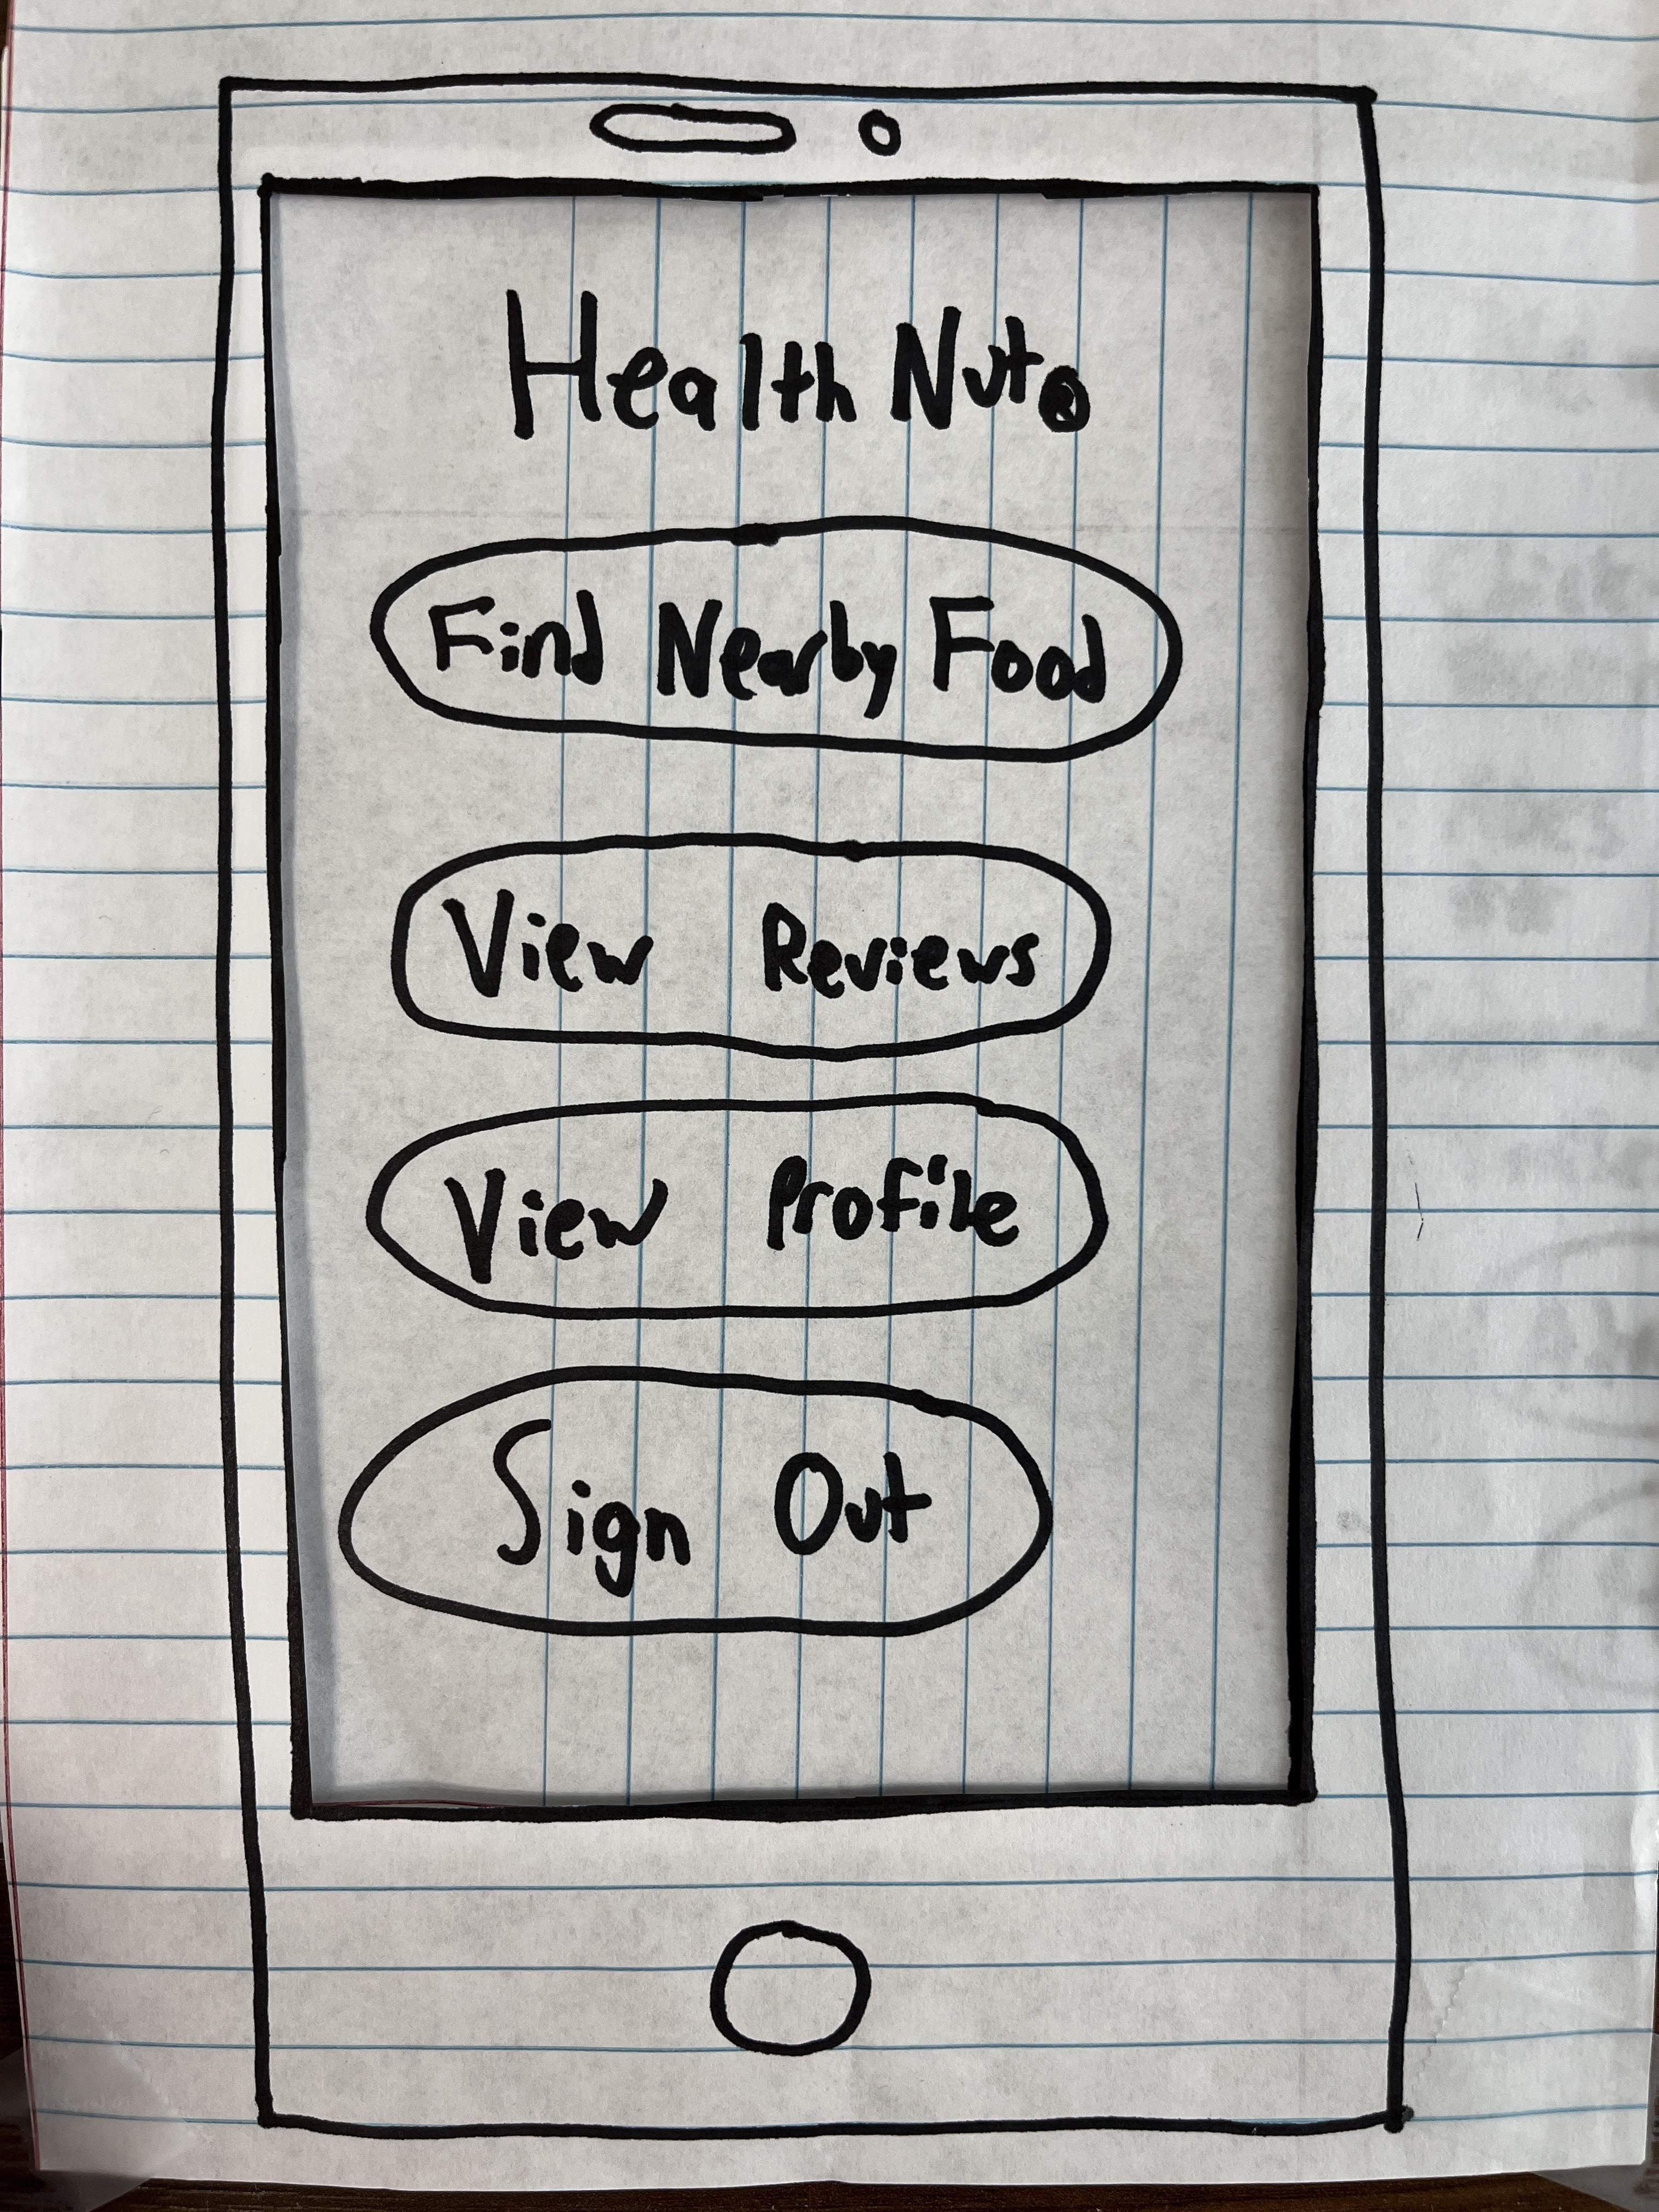 Health Nut
Find Nearby Food
View Reviews
View Profile
Sign Out